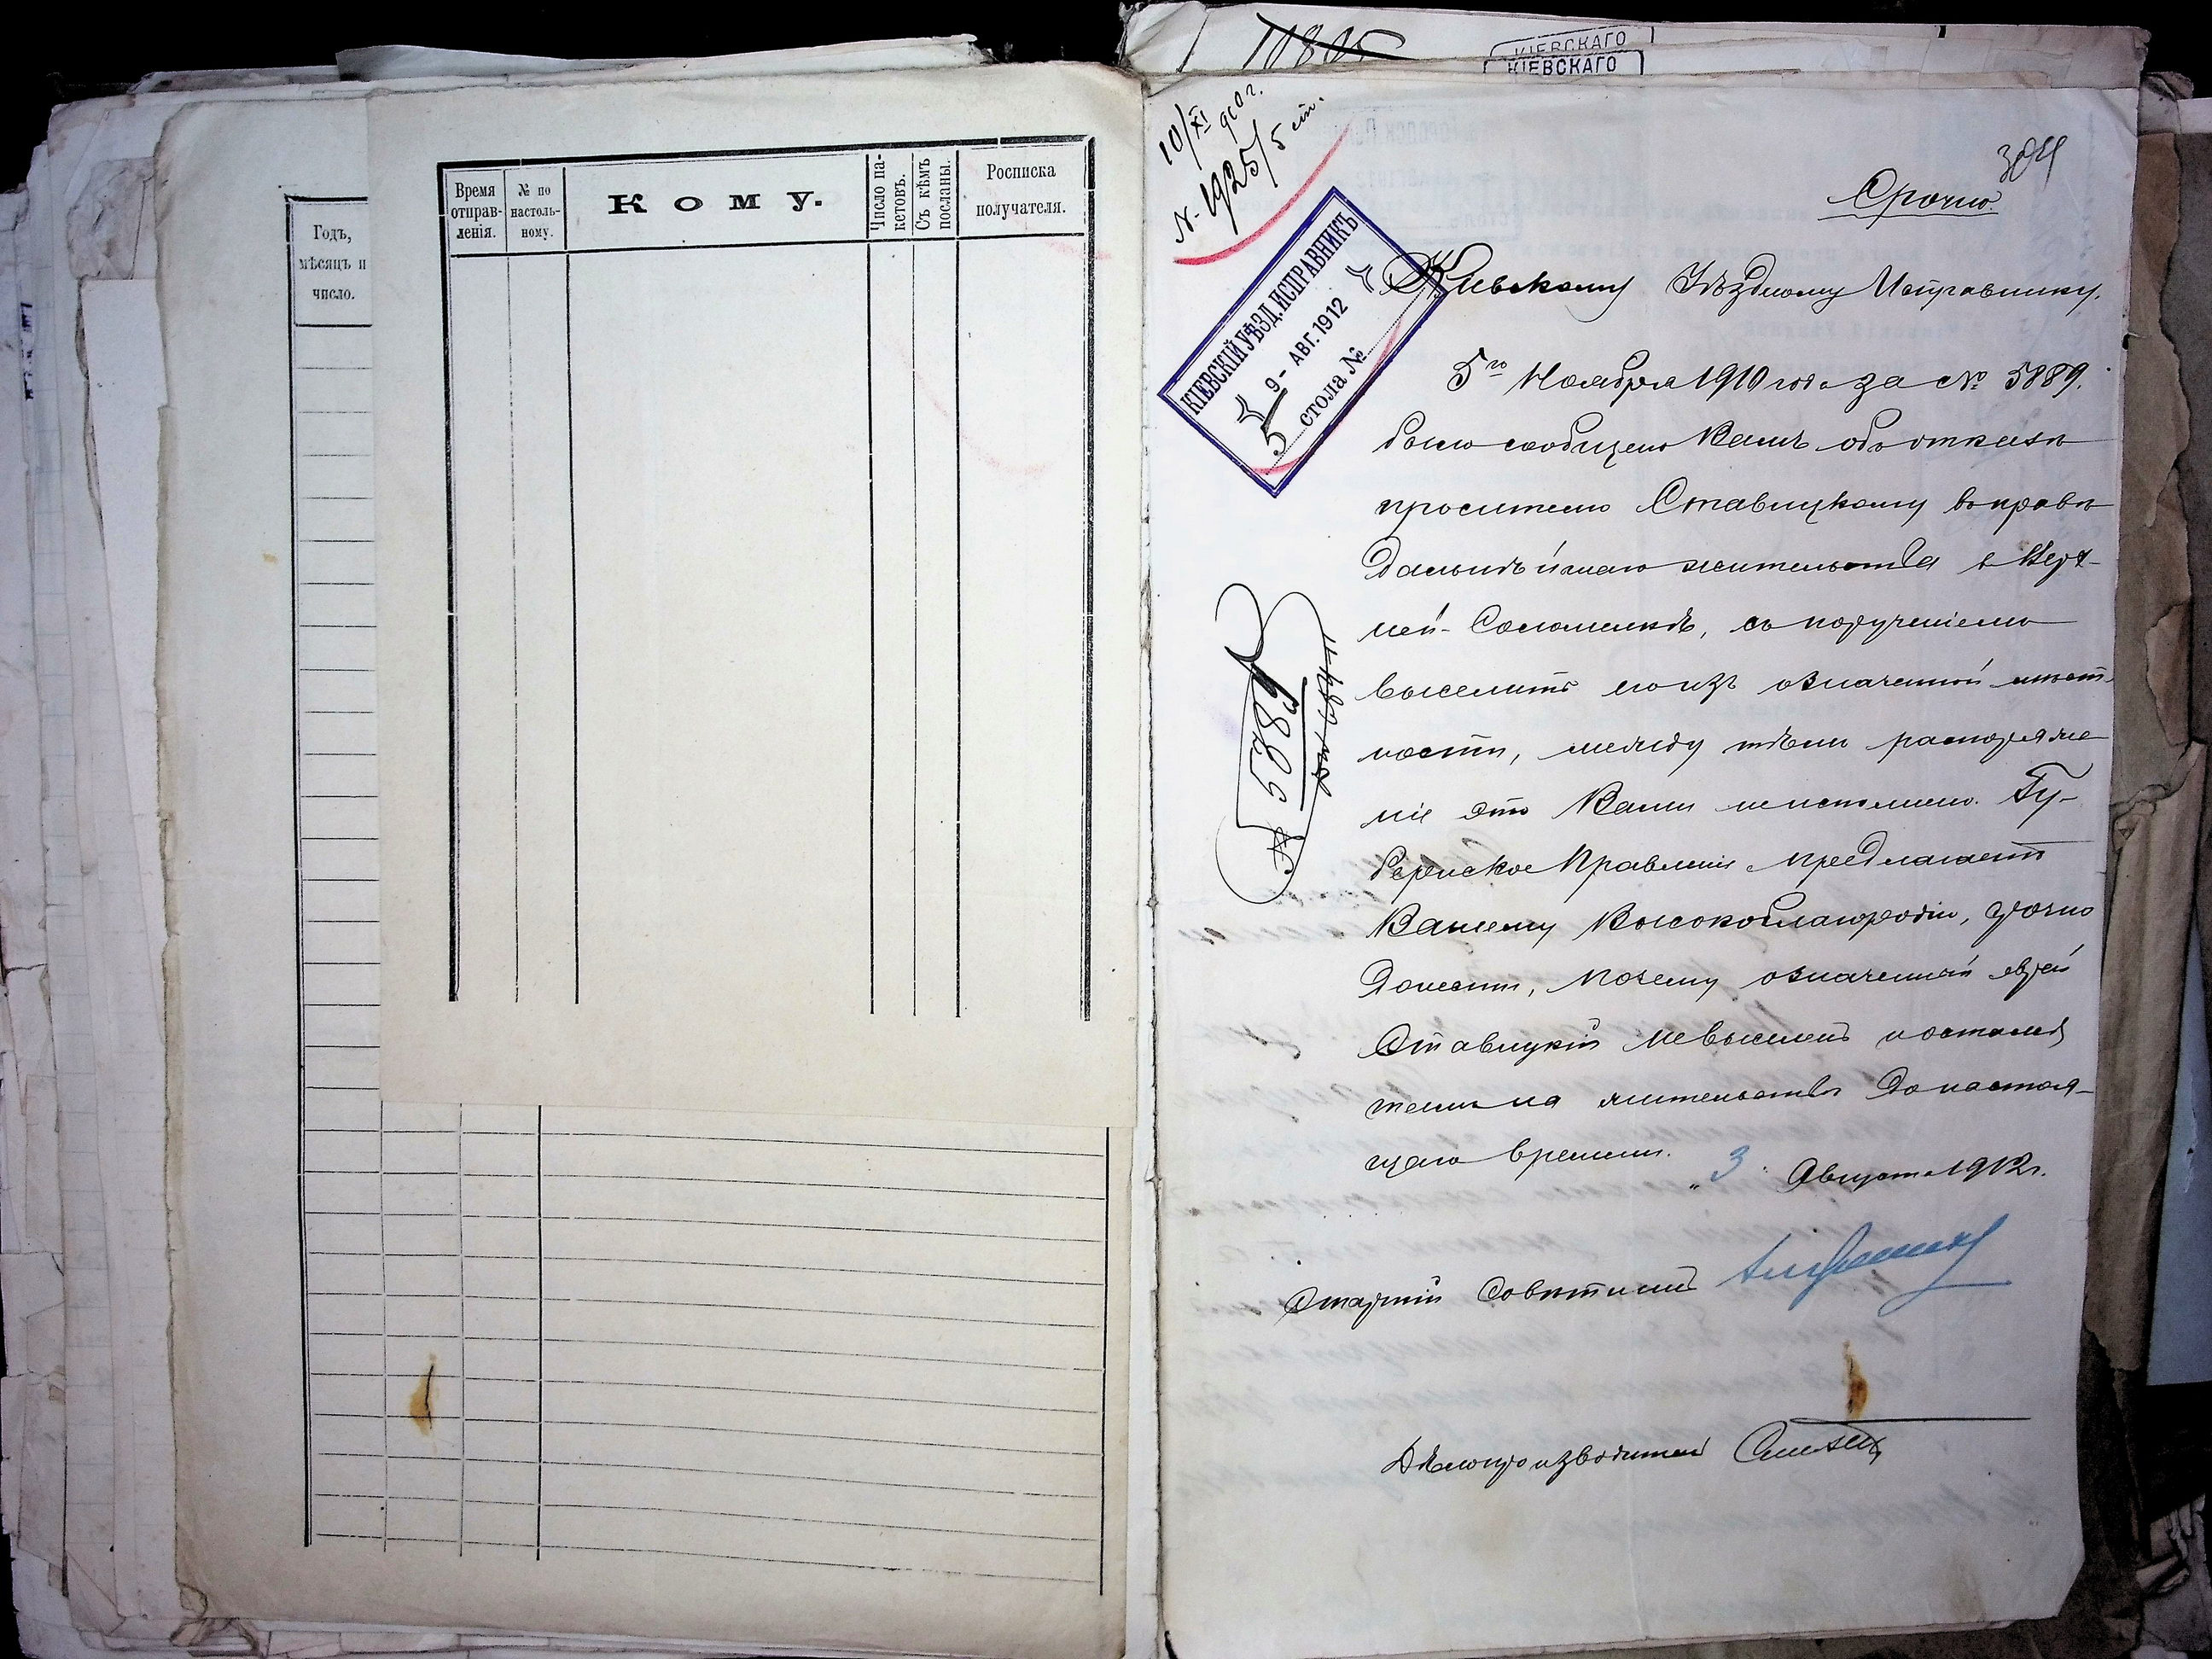 Годъ,
мѣсяцъ и
число.
Время
отправ-
ленія.
№ по
настоль-
ному.
Кому.
Число па-
кетовъ.
Съ кѣмъ
посланы.
Росписка
получателя.
10805
КІЕВСКАГО
КІЕВСКАГО
10/XI 910 г.
N. 1925/5 ст.
304
Срочно.
КІЕВСКІЙ УѢЗД. ИСПРАВНИКЪ
9 - АВГ. 1912
5 стола №
Кіевскому Уѣздному Исправнику.
5го Ноября 1910 года за № 5889.
было сообщено Вамъ объ отказѣ
просителю Ставицкому въ правѣ
дальнѣйшаго жительства в Верх-
ней-Соломенкѣ, съ порученіемъ
выселить его изъ означенной мѣст-
ности, между тѣмъ распоряже
ніе это Вами неисполнено. Гу-
бернское Правленіе предлагаетъ
Вашему Высокоблагородію, срочно
донести, почему означенный еврей
Ставицкій невыселенъ и оставленъ
на жительствѣ до настоя-
щаго времени.
"3" Августа 1912 г.
№ 5789
Старшій Совѣтникъ
Дѣлопроизводитель